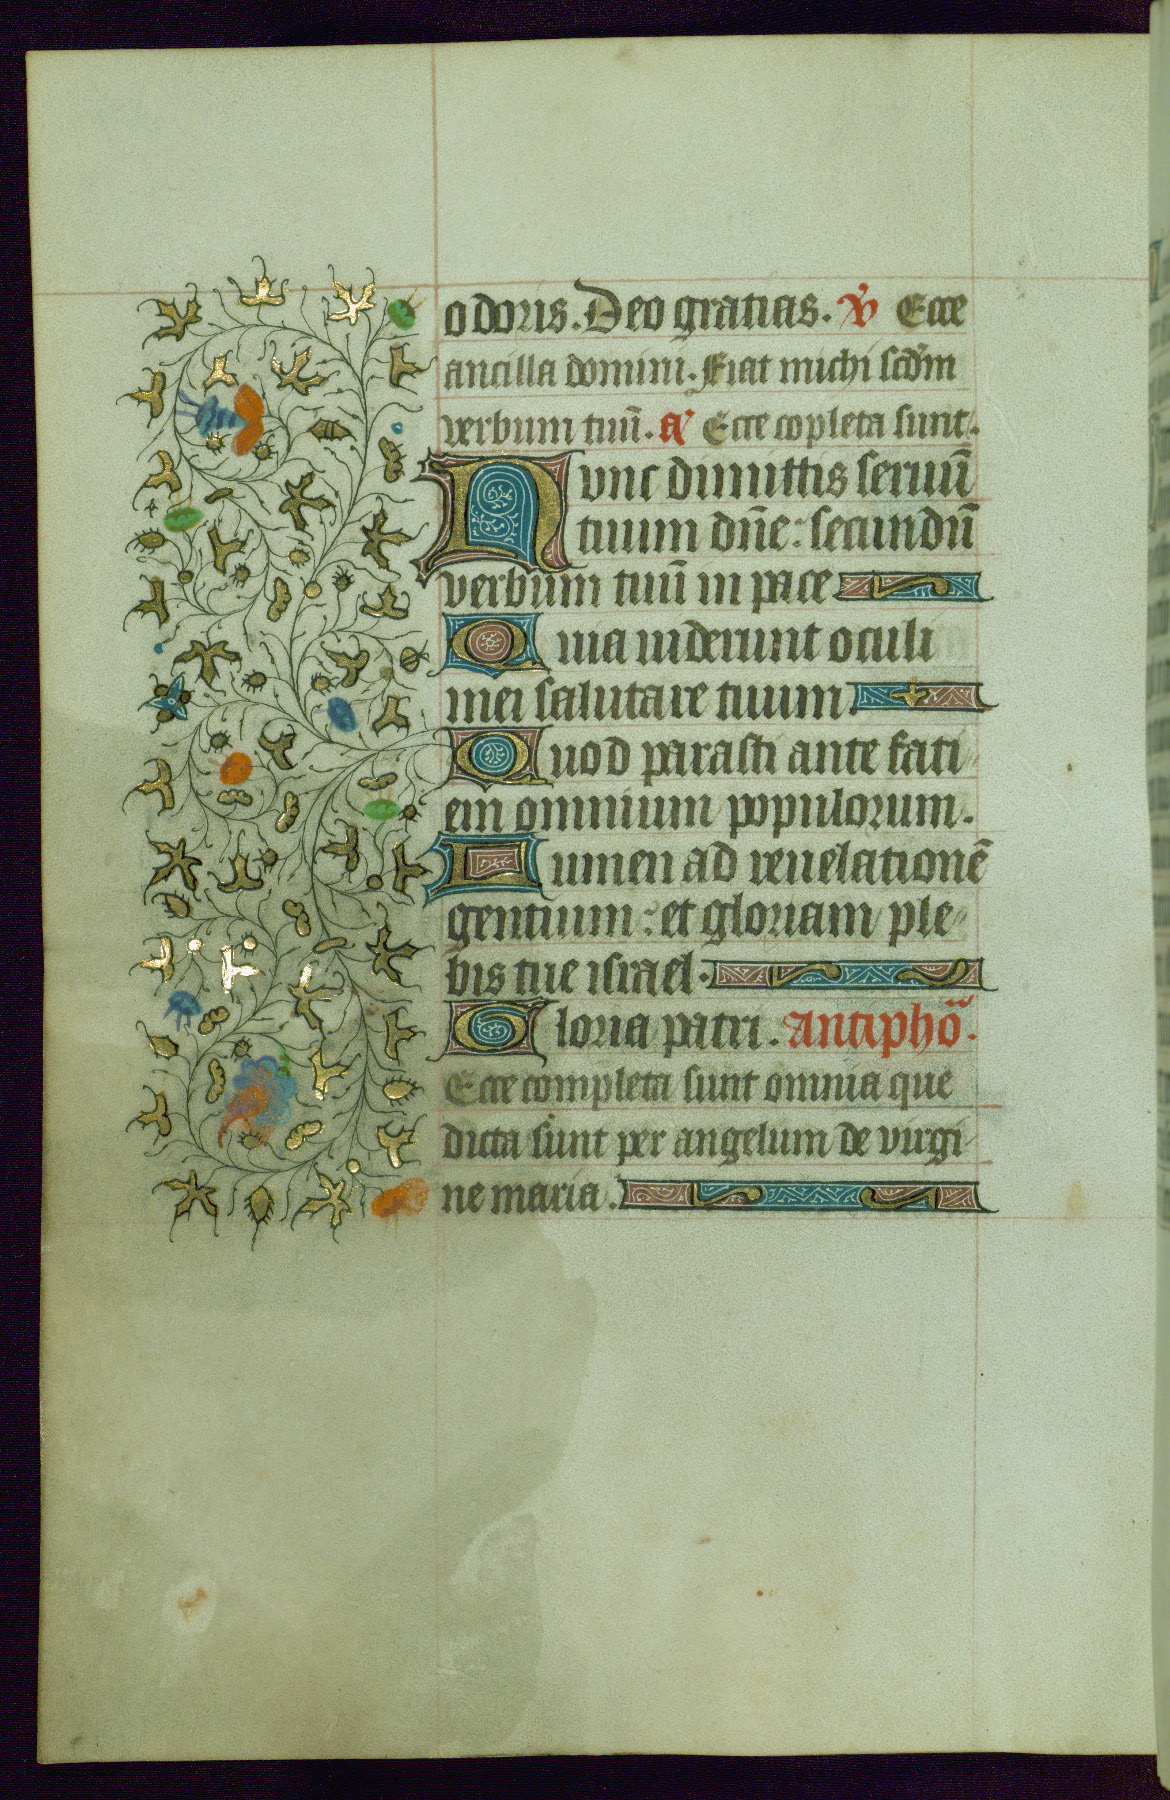 odoris. Deo gratias. v̕ Ecce
ancilla domini. Fiat michi scd̄m
verbum tuū. a̕ Ecce cōpleta sunt.
Nunc dimittis seruū
tuum dn̄e: secundū
verbum tuū in pace
Quia uiderunt oculi
mei salutare tuum
Quod parasti ante faci
em omnium populorum.
Lumen ad reuelationē
gentium: et gloriam ple
bis tue israel.
Gloria patri. Antiphō.
Ecce completa sunt omnia que
dicta sunt per angelum de virgi
ne maria.